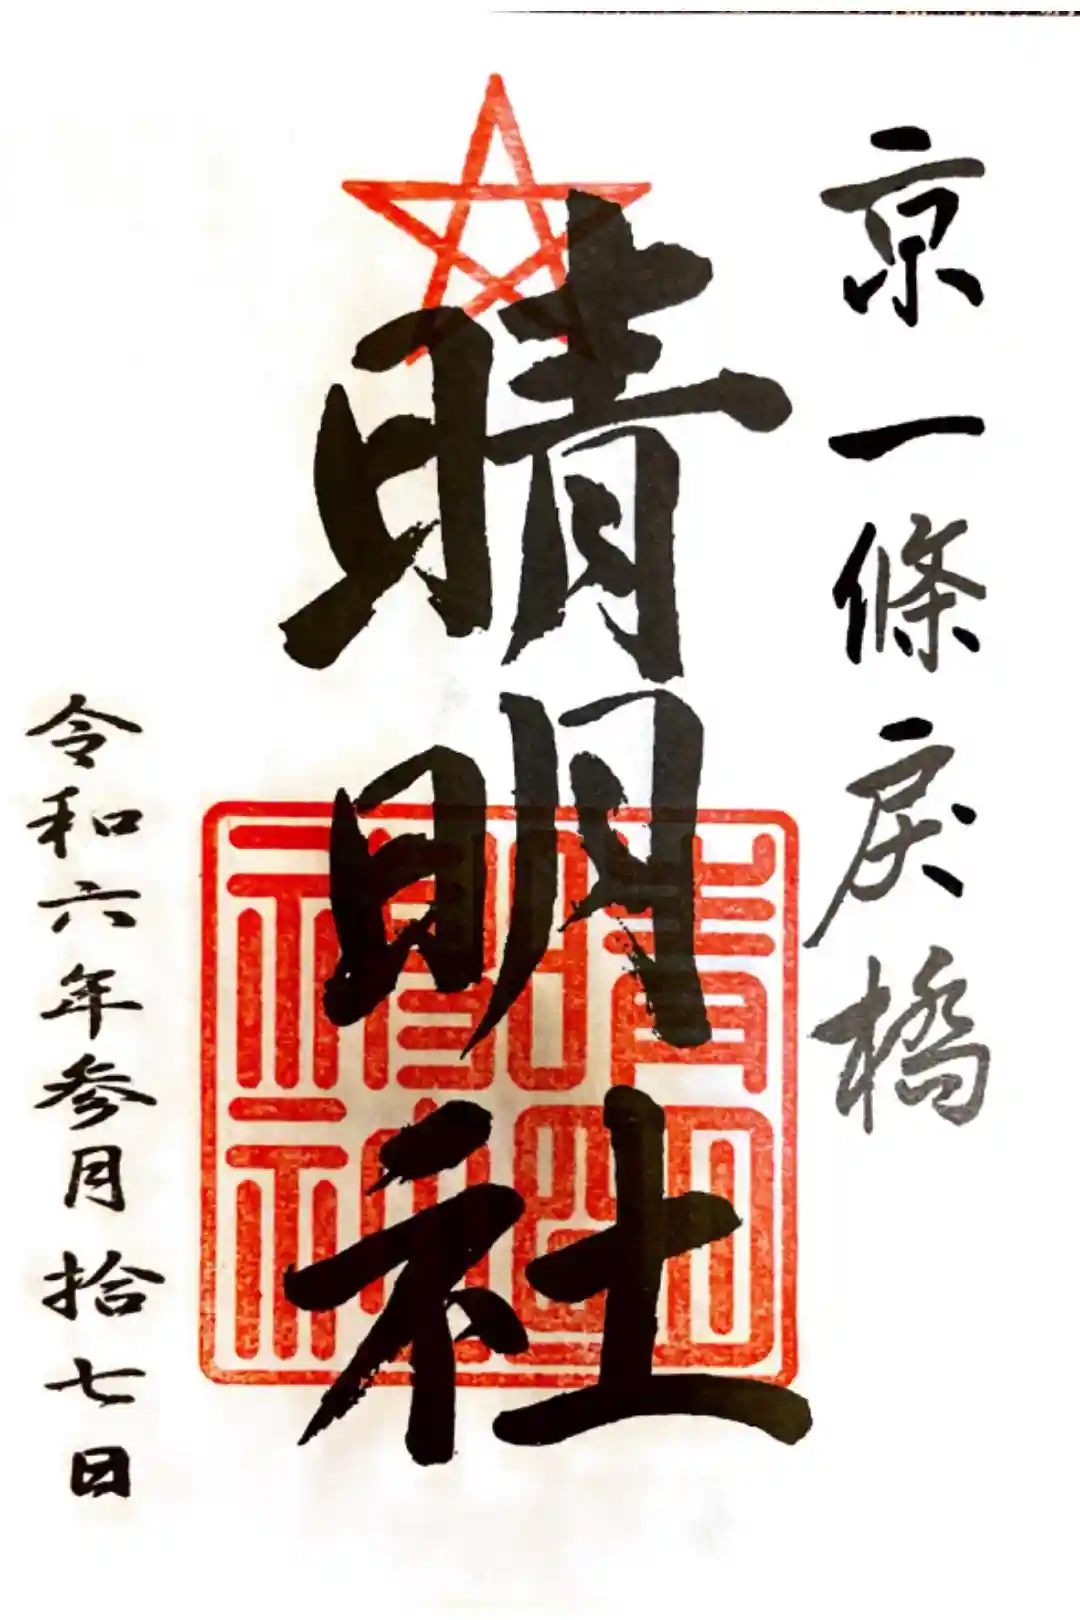 京一條戻橋
晴明社
晴明神社
令和六年参月拾七日